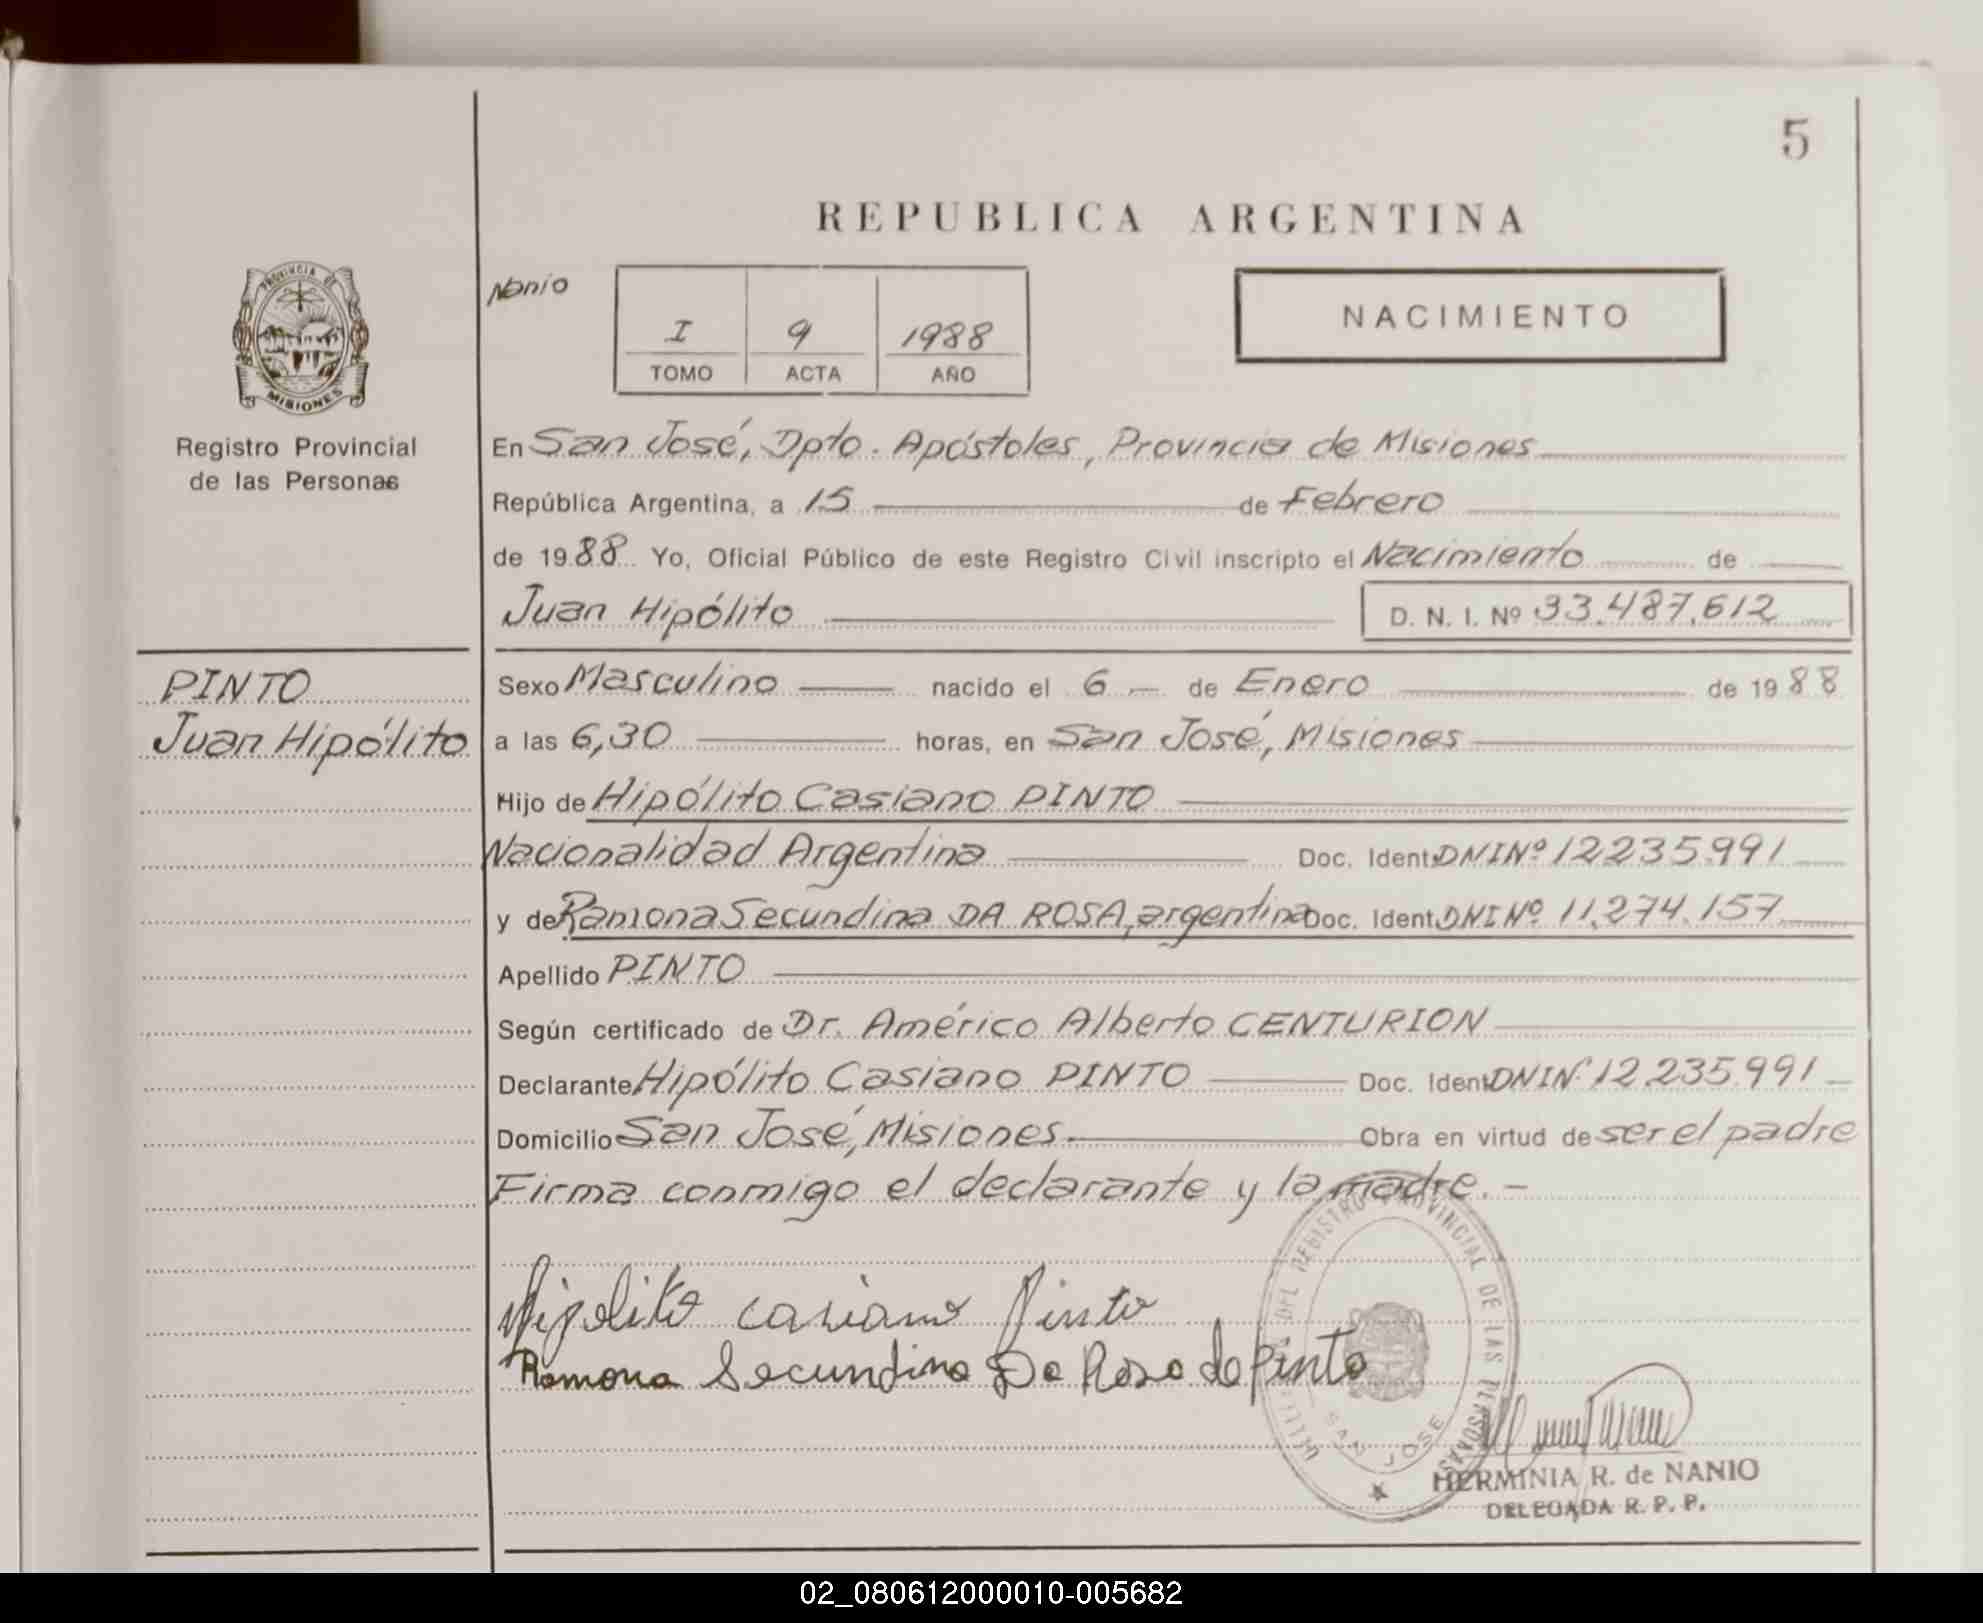 5
REPUBLICA ARGENTINA
Nanio
I 9 1988
TOMO ACTA AÑO
NACIMIENTO
PROVINCIA DE
MISIONES
Registro Provincial
de las Personas
En San José, Dpto. Apóstoles, Provincia de Misiones
República Argentina, a 15 de Febrero
de 1988 Yo, Oficial Público de este Registro Civil inscripto el Nacimiento de
Juan Hipólito D. N. I. Nº 33.487.612
PINTO
Juan Hipólito
Sexo Masculino nacido el 6 de Enero de 1988
a las 6,30 horas, en San José, Misiones
Hijo de Hipólito Casiano PINTO
Nacionalidad Argentina Doc. Ident. DNI Nº 12.235.991
y de Ramona Secundina DA ROSA, argentina Doc. Ident. DNI Nº 11.274.157
Apellido PINTO
Según certificado de Dr. Américo Alberto CENTURION
Declarante Hipólito Casiano PINTO Doc. Ident. DNI Nº 12.235.991
Domicilio San José, Misiones. Obra en virtud de ser el padre
Firma conmigo el declarante y la madre. -
Hipolito Casiano Pinto
Ramona Secundina Da Rosa de Pinto
DEL REGISTRO PROVINCIAL DE LAS PERSONAS
SAN JOSE
HERMINIA R. de NANIO
DELEGADA R. P. P.
02_080612000010-005682